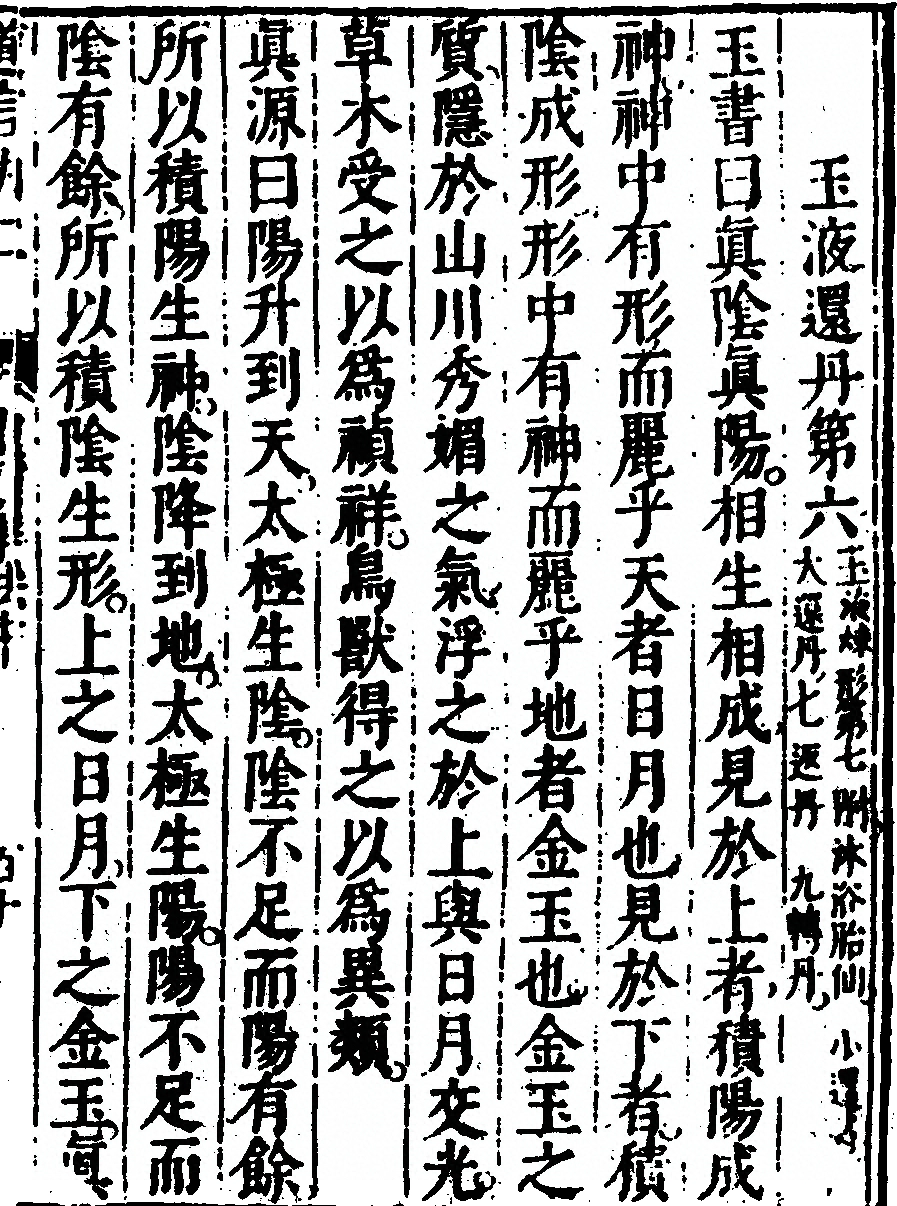 玉液還丹第六 玉液煉形第七 附沐浴胎仙 小還丹
大還丹 七返丹 九轉丹
玉書曰眞陰眞陽相生相成見於上者積陽成
神神中有形而麗乎天者日月也見於下者積
陰成形形中有神而麗乎地者金玉也金玉之
質隱於山川秀媚之氣浮之於上與日月交光
草木受之以爲禎祥鳥獸得之以爲異類
眞源曰陽升到天太極生陰陰不足而陽有餘
所以積陽生神陰降到地太極生陽陽不足而
陰有餘所以積陰生形上之日月下之金玉眞